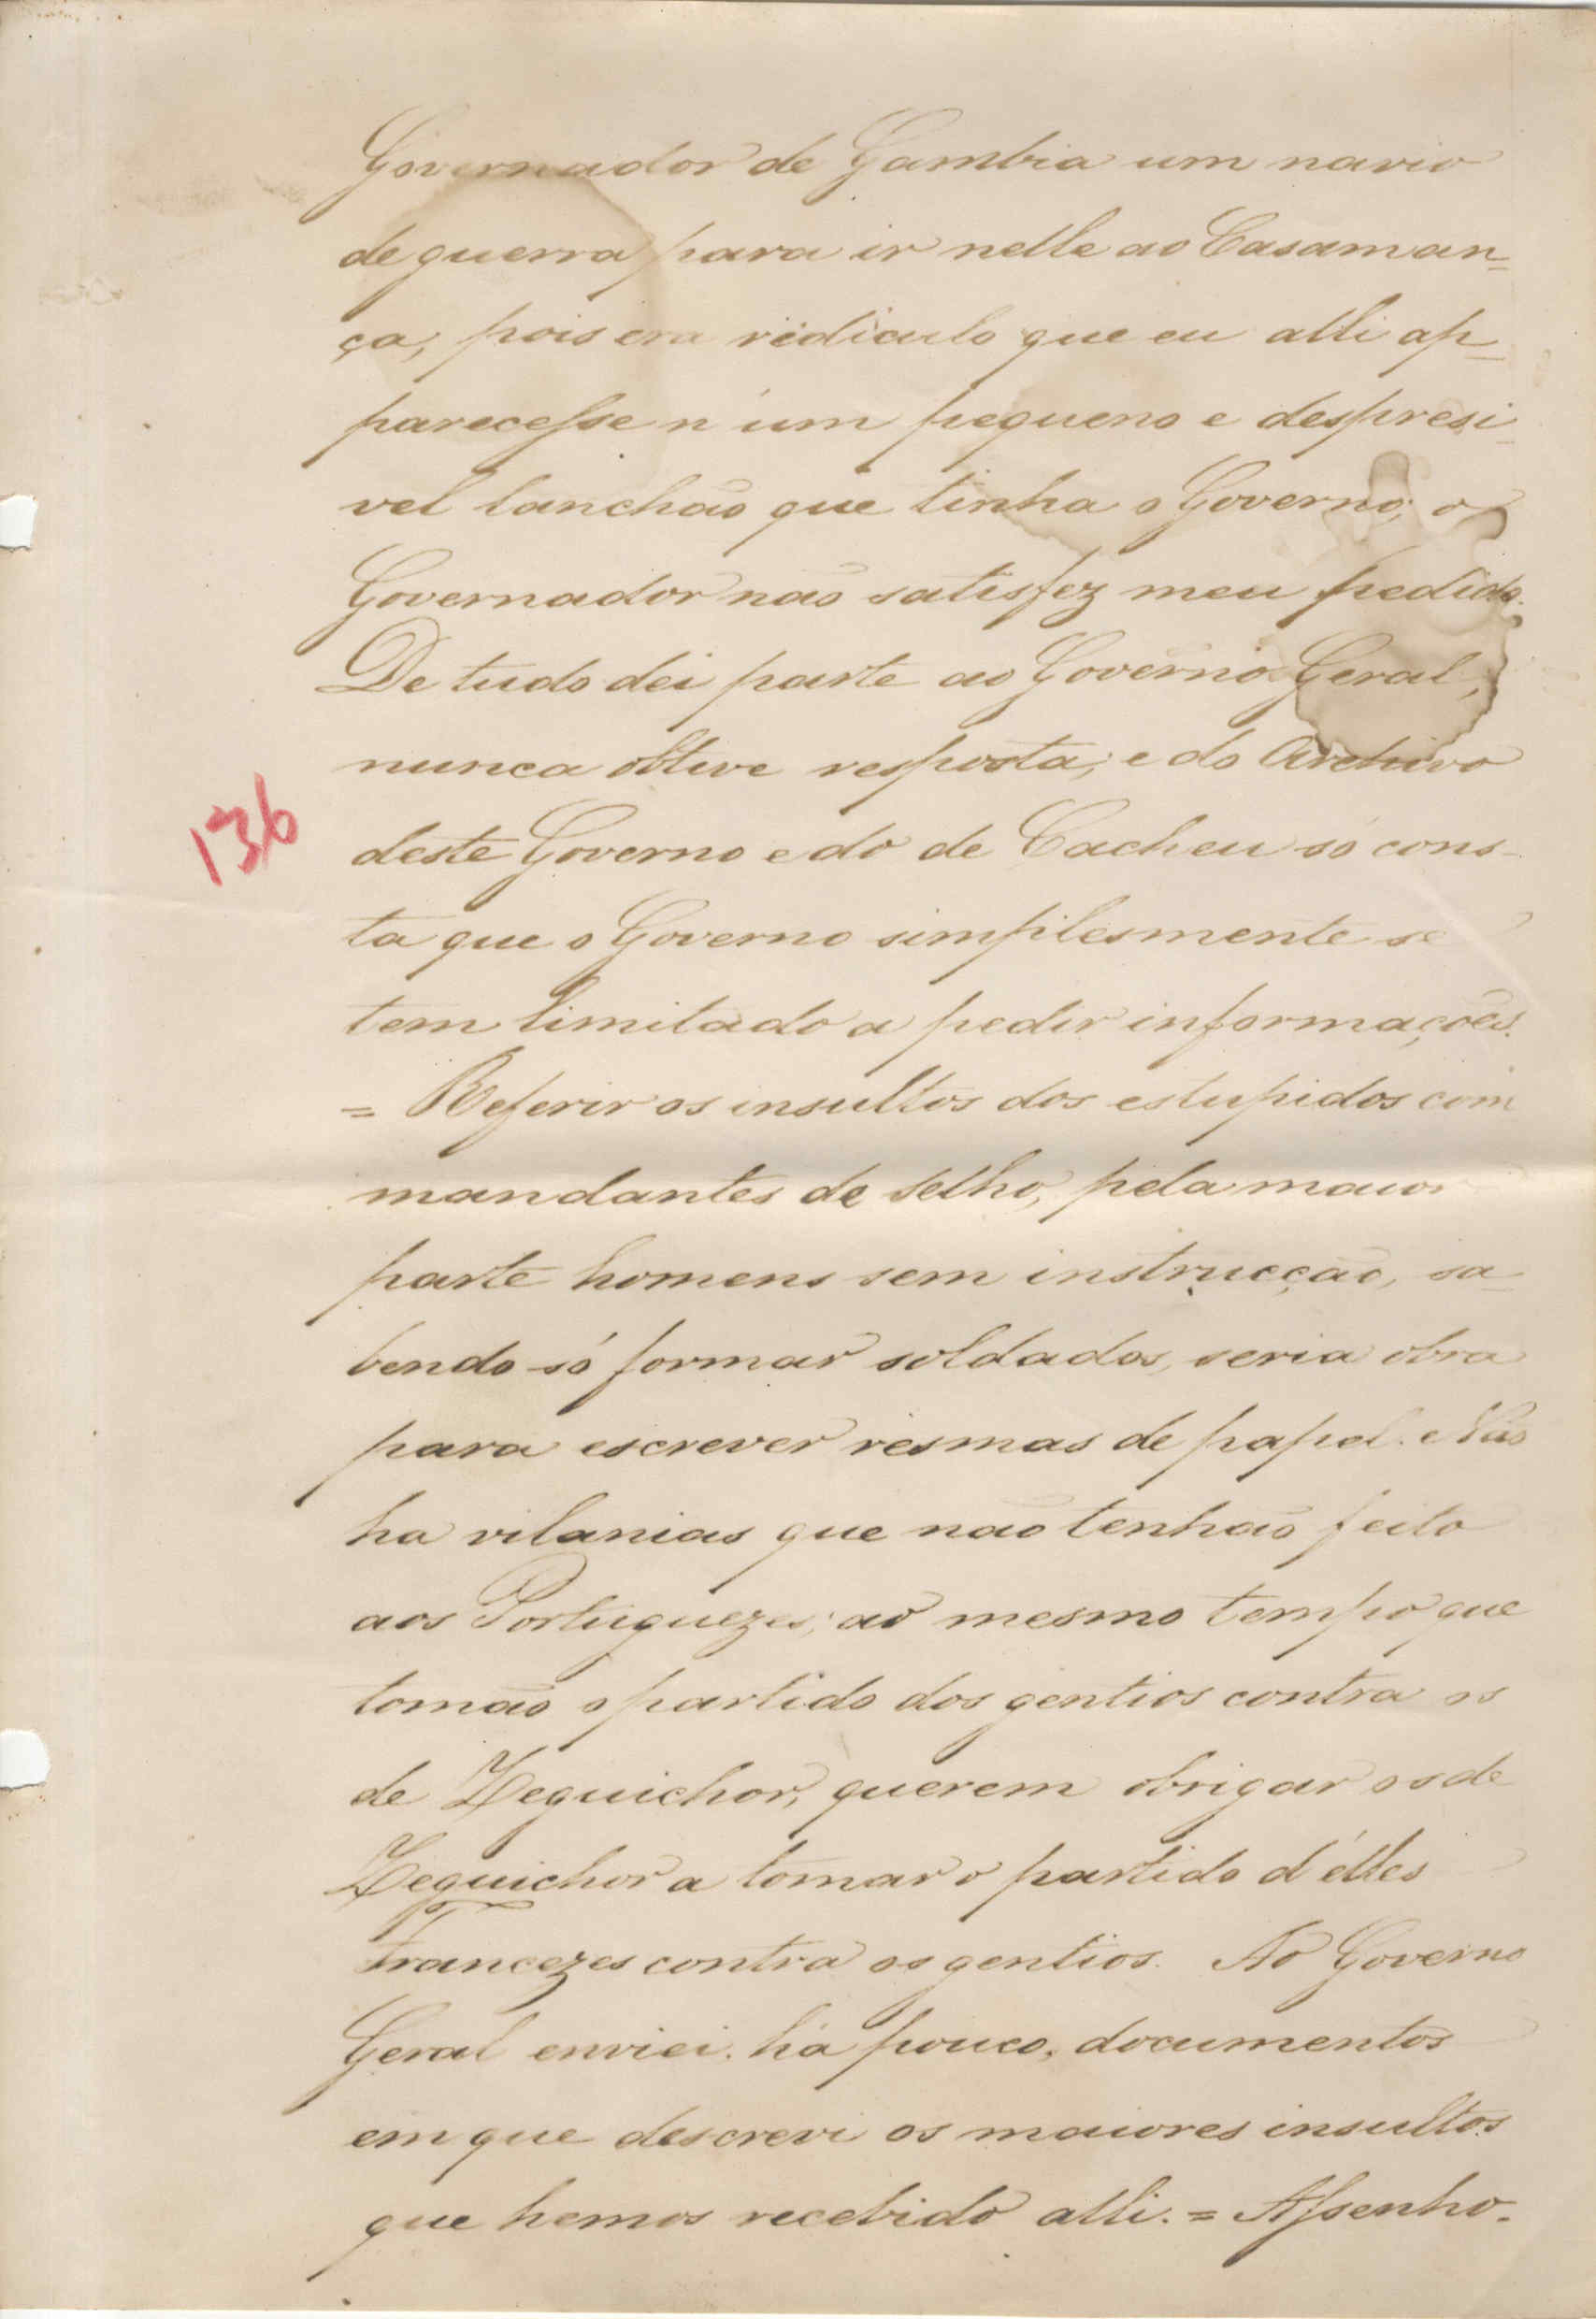 Governador de Gambia um navio
de guerra para ir nelle ao Casaman=
ça; pois era ridiculo que eu alli ap=
parecesse n'um pequeno e despresi=
vel lanchão que tinha o Governo; o
Governador não satisfez meu pedido.
De tudo dei parte ao Governo Geral,
nunca obtive resposta; e do Archivo
136
deste Governo e do de Cacheu só cons-
ta que o Governo simplesmente se
tem limitado a pedir informações.
= Referir os insultos dos estupidos com
mandantes de Selho, pela maior
parte homens sem instrucção, sa=
bendo só formar soldados, seria obra
para escrever resmas de papel. Não
ha vilanias que não tenhão feito
aos Portuguezes; ao mesmo tempo que
tomão o partido dos gentios contra os
de Zeguichor, querem obrigar os de
Zeguichor a tomar o partido d'élles
Francezes contra os gentios. Ao Governo
Geral enviei, há pouco, documentos
em que descrevi os maiores insultos
que hemos recebido alli. = Assenho-